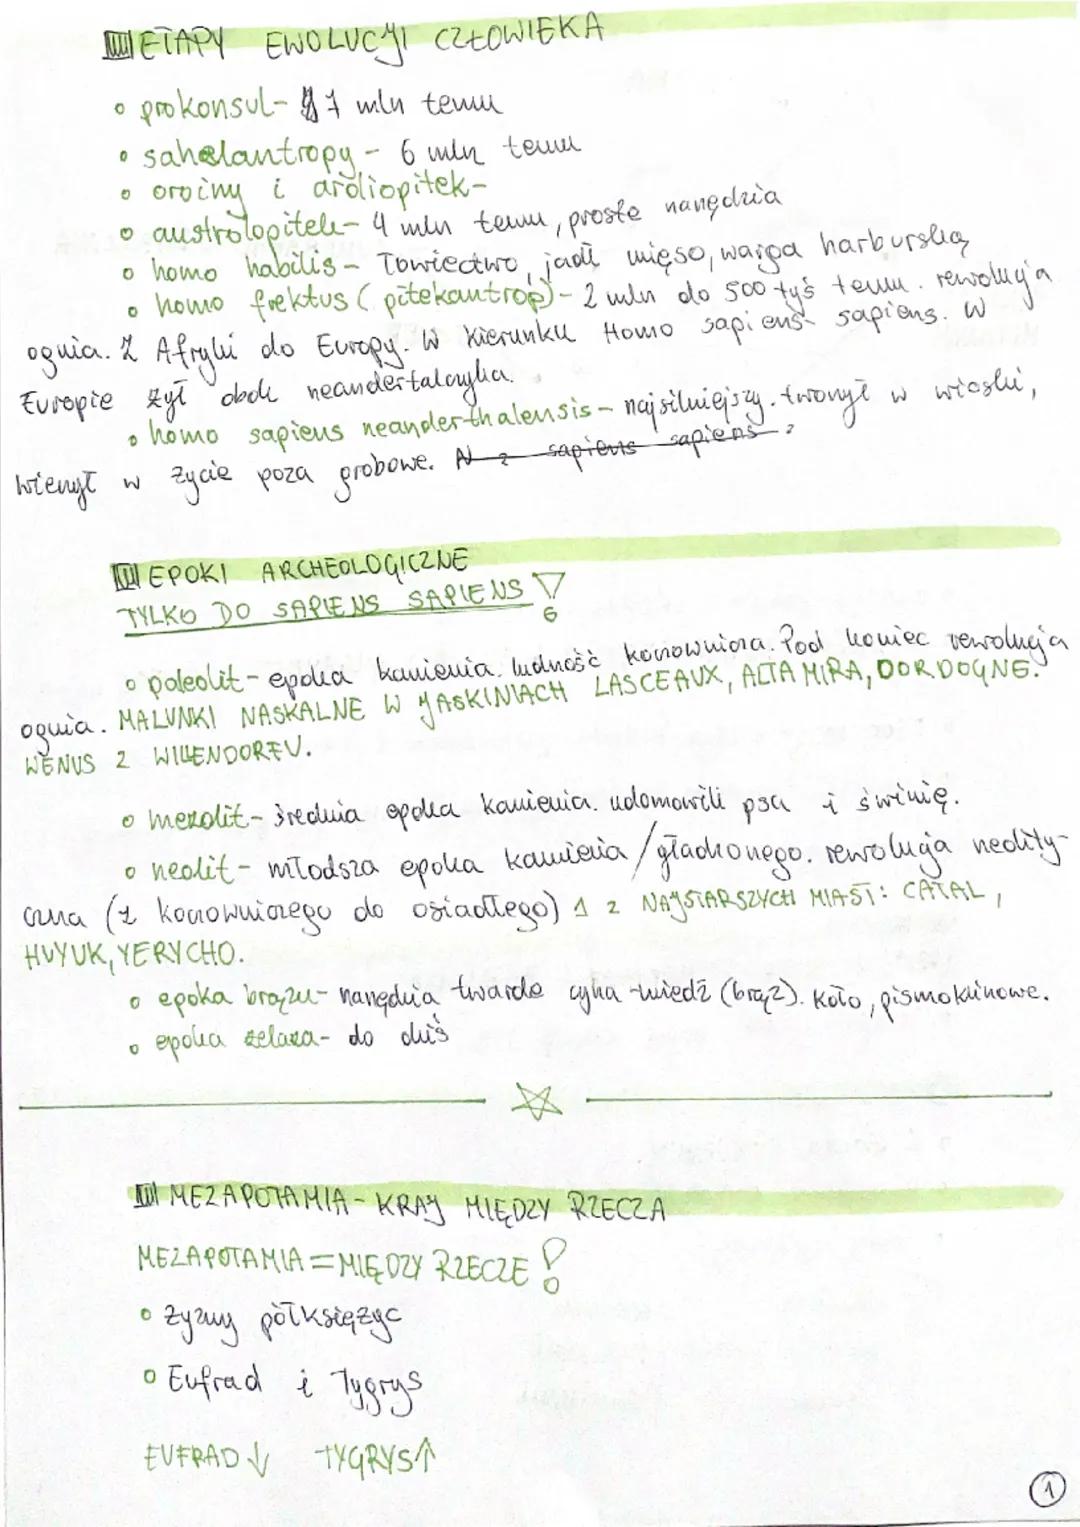 ETAPY EWOLUCJI CZŁOWIEKA
o prokonsul- 7 mln temu
o sahelantropy - 6 mln temu
o oroiny i ardiopitek-
o austrolopitek- 4 mln temu, proste narzędzia
o homo habilis - Łowiectwo, jadł mięso, warga harburska
o homo erektus (pitekantrop) - 2 mln do 500 tyś temu. rewolucja
ognia. Z Afryki do Europy. W kierunku Homo sapiens sapiens. W
Europie żył obok neandertalczyka.
o homo sapiens neanderthalensis - najsilniejszy. tworzył w wioski,
wierzył w życie poza grobowe. N z sapiens sapiens z
EPOKI ARCHEOLOGICZNE
TYLKO DO SAPIENS SAPIENS !
o paleolit - epoka kamienia. ludność koczownicza. Pod koniec rewolucja
ognia. MALUNKI NASKALNE W JASKINIACH LASCEAUX, ALTAMIRA, DORDOGNE.
WENUS Z WILLENDORFU.
o mezolit - średnia epoka kamienia. udomowili psa i świnię.
o neolit - młodsza epoka kamienia / gładzonego. rewolucja neolity-
czna (z koczowniczego do osiadłego) 1 Z NAJSTARSZYCH MIAST: CATAL,
HUYUK, JERYCHO.
o epoka brązu - narzędzia twarde cyna + miedź (brąz). Koło, pismo klinowe.
o epoka żelaza - do dziś
MEZAPOTAMIA - KRAJ MIĘDZY RZECZA
MEZAPOTAMIA = MIĘDZY RZECZE !
o Żyzny półksiężyc
o Eufrad i Tygrys
EUFRAD ↓ TYGRYS ↑
1